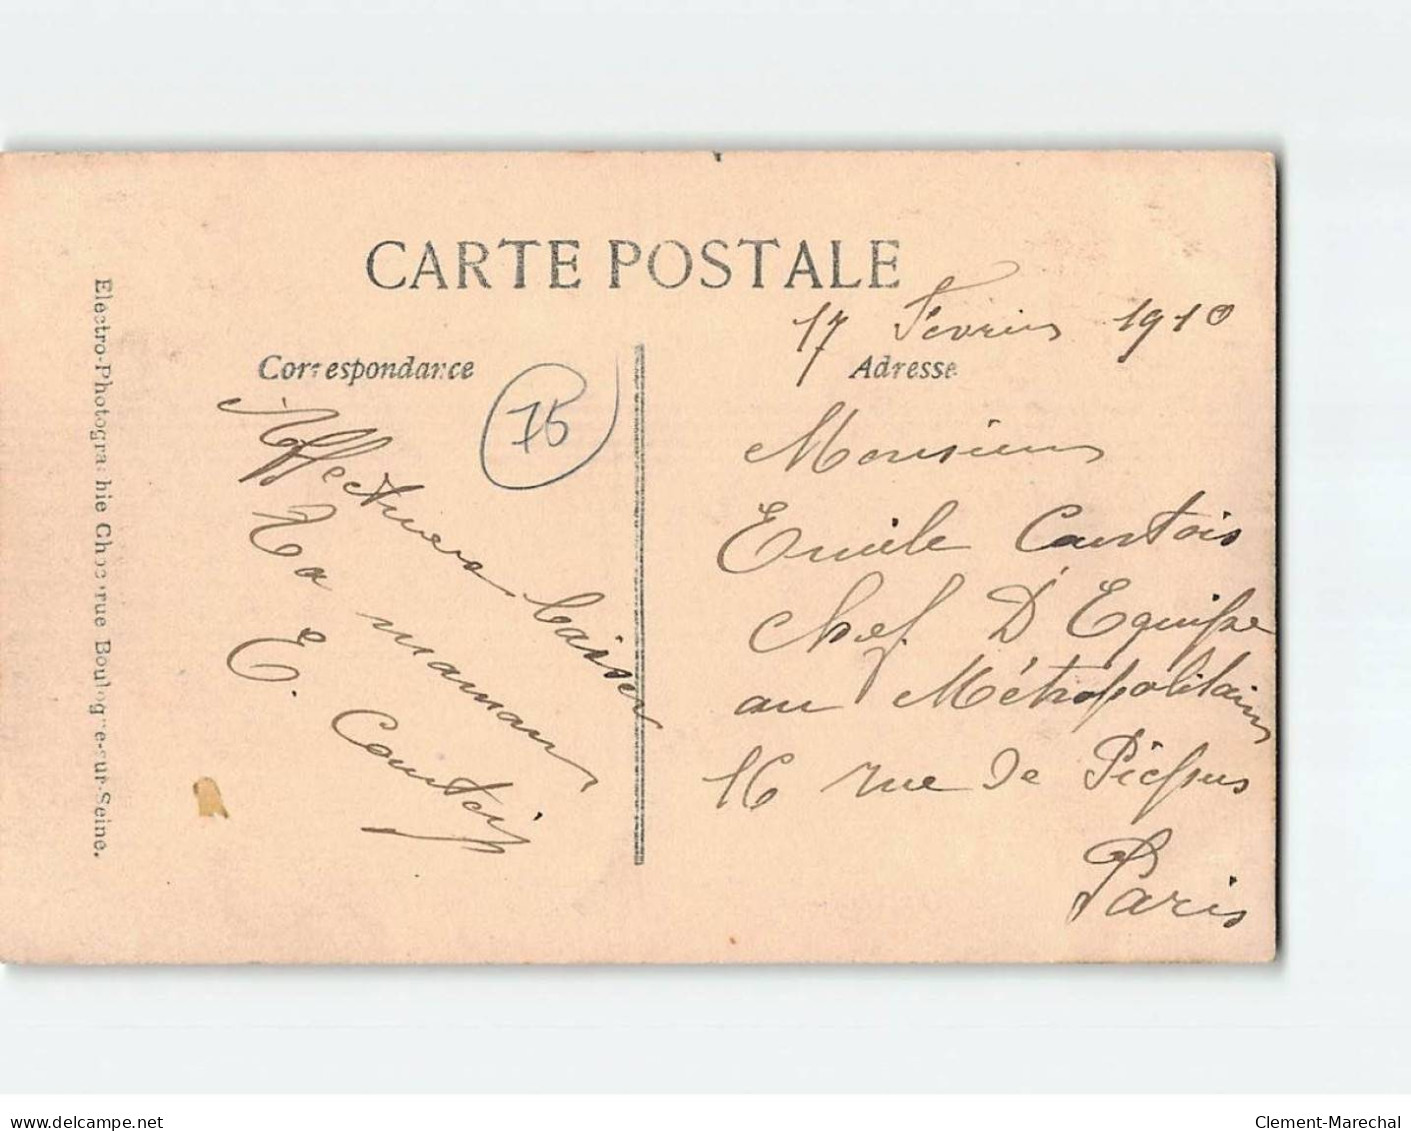 CARTE POSTALE
17 Fevrier 1910
Correspondance
Adresse
75
Affectueux baiser
Ta maman
E. Courtois
Monsieur
Emile Courtois
chef D'Equipe
au Métropolitain
16 rue de Picpus
Paris
Electro-Photographie Choc rue Boulogne-sur-Seine.
www.delcampe.net
Clement-Marechal